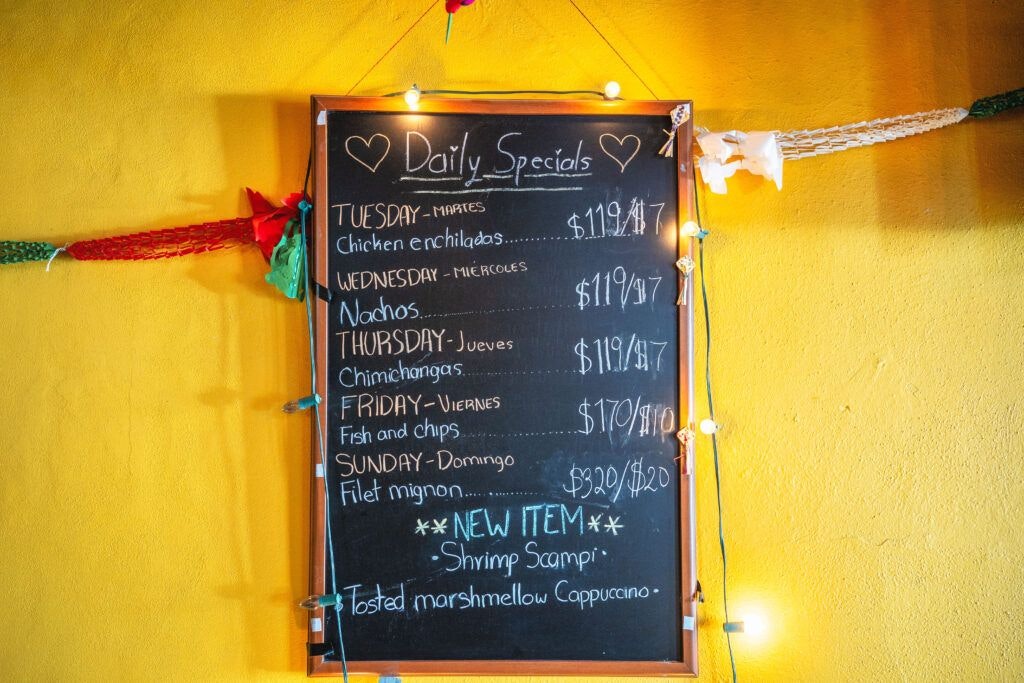 Daily Specials
TUESDAY - MARTES
Chicken enchiladas.......... $119/$7
WEDNESDAY - MIÉRCOLES
Nachos.......... $119/$7
THURSDAY - Jueves
Chimichangas.......... $119/$7
FRIDAY - VIERNES
Fish and chips.......... $170/$10
SUNDAY - Domingo
Filet mignon.......... $320/$20
** NEW ITEM **
• Shrimp Scampi •
Tosted marshmellow Cappuccino •